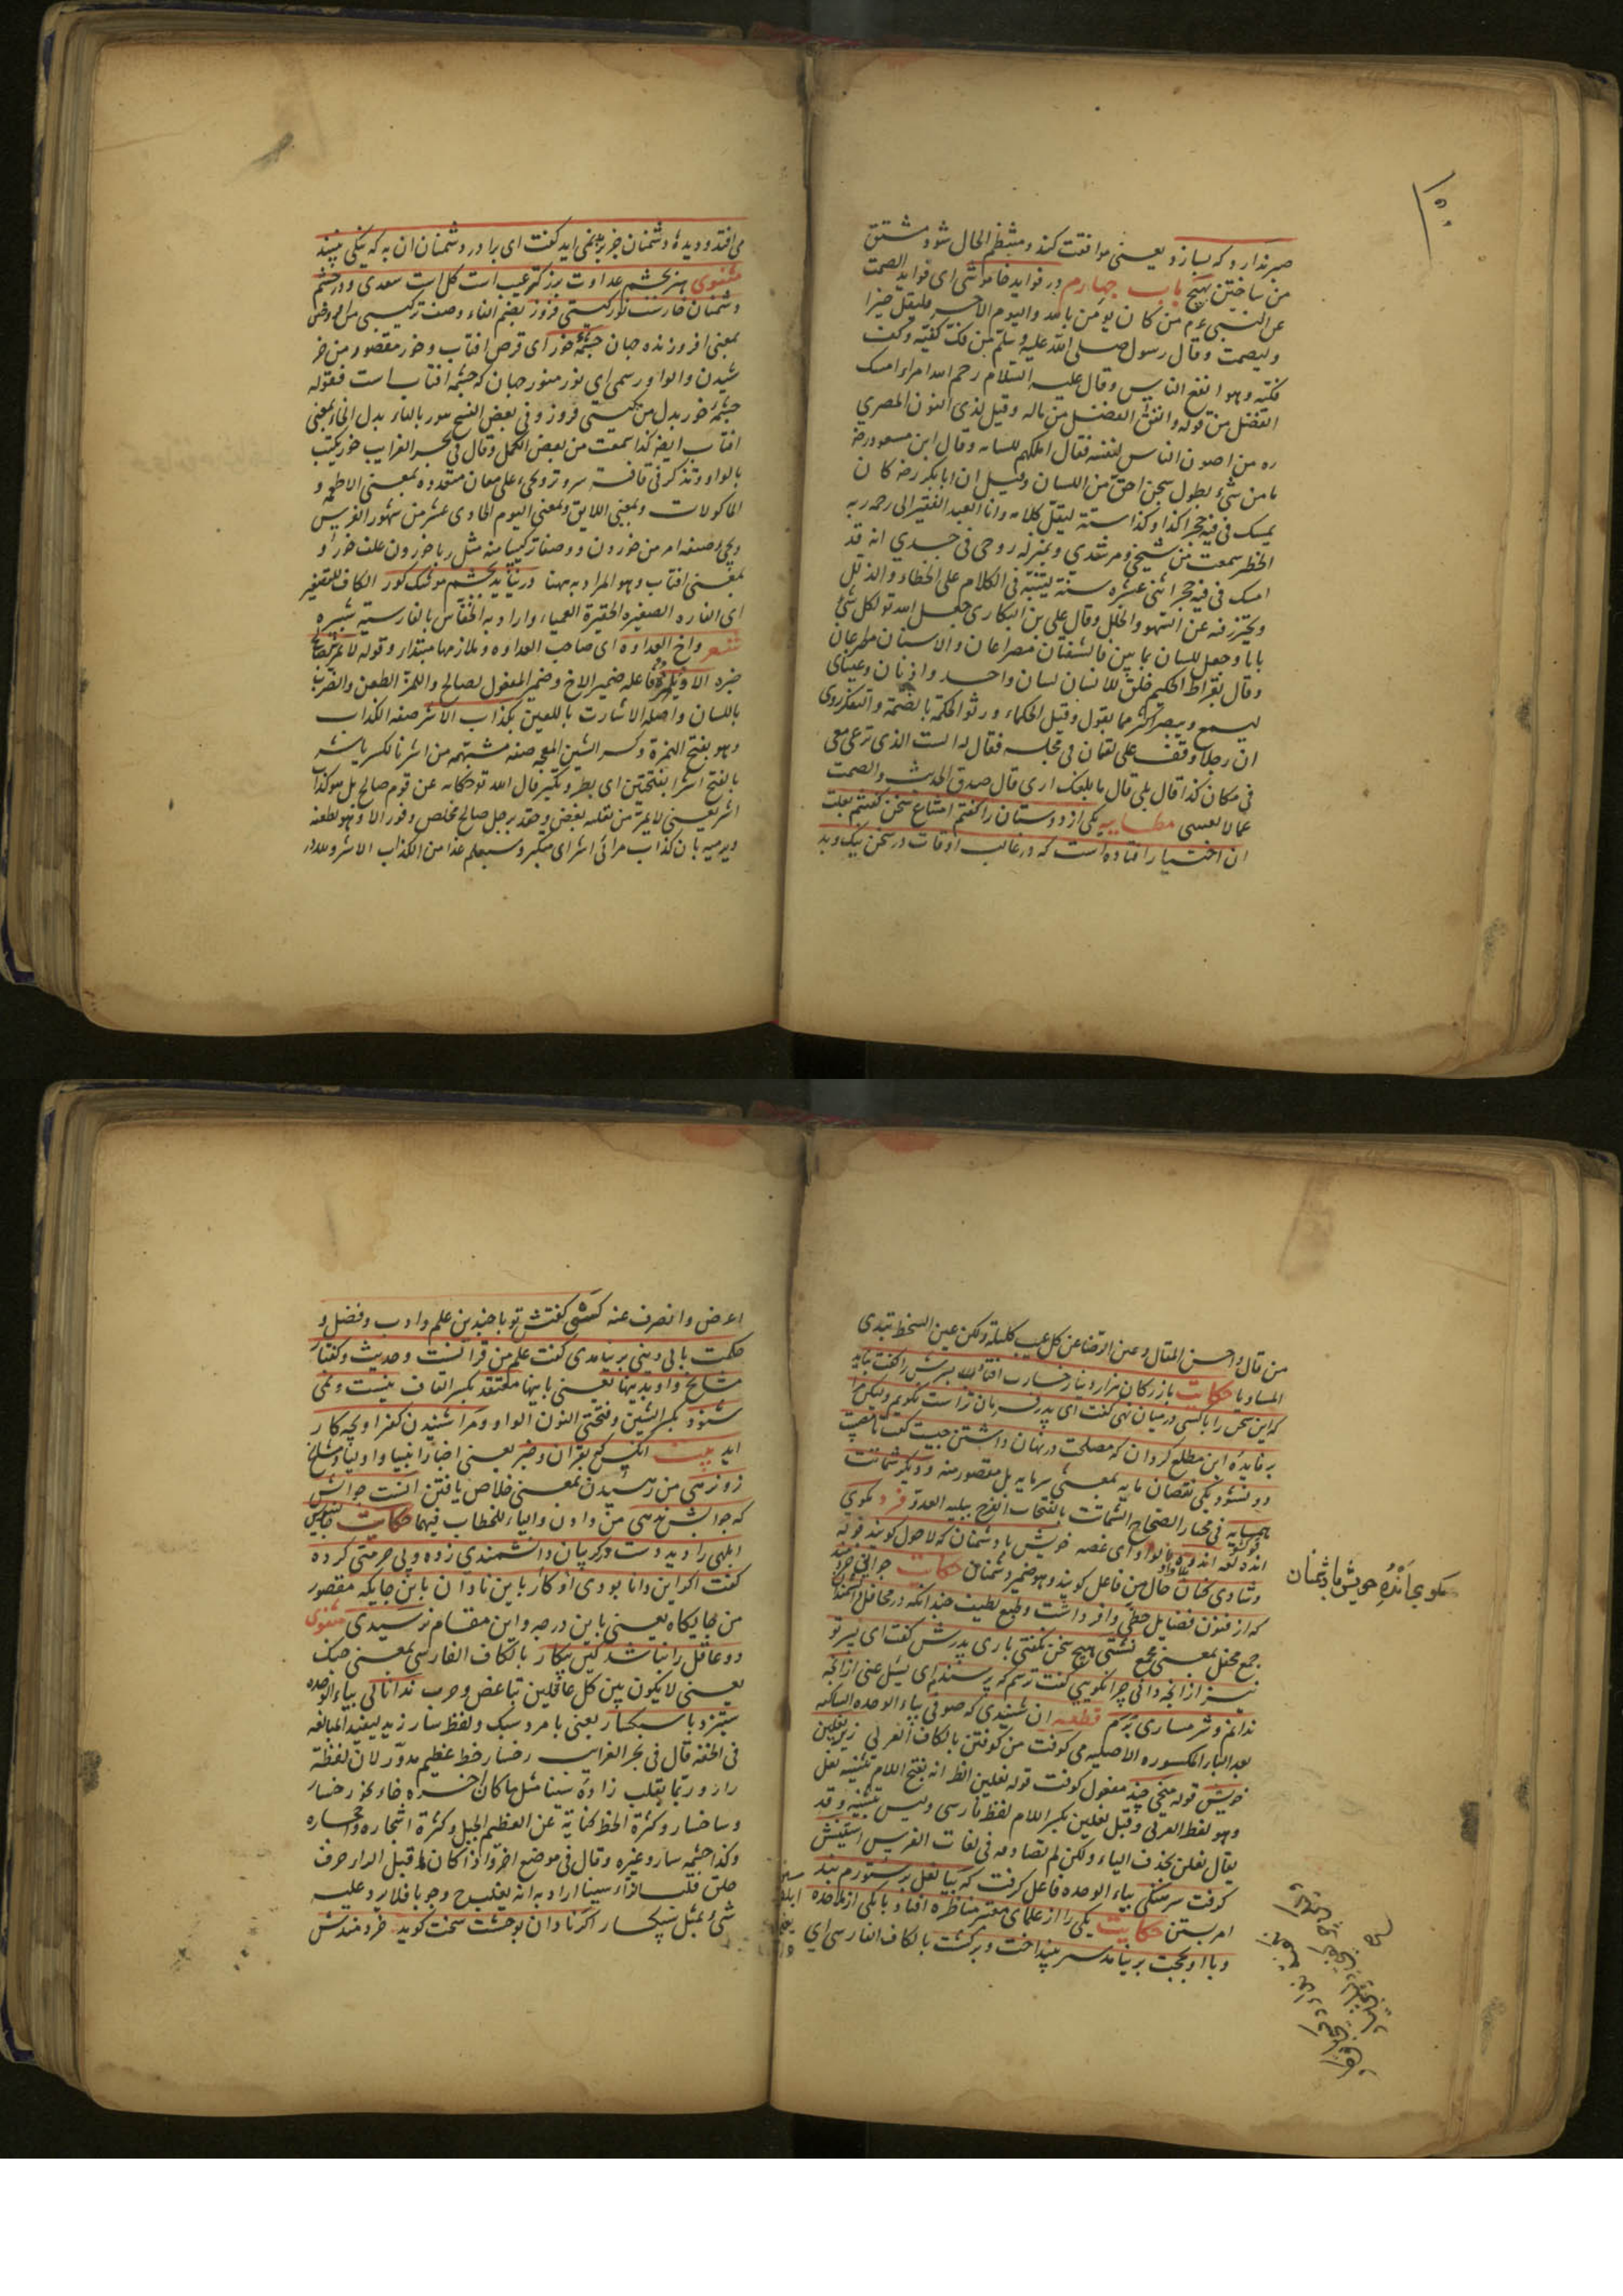 صبر ندارد که بسازد یعنی موافقت کند و منتظم الحال شود مشتق
من ساختن بهیچ باب چهارم در فواید خاموشی ای فواید الصمت
عن النبی عم من کان یؤمن بالله والیوم الاخر فلیقل خیرا
ولیصمت وقال رسول صلی الله علیه وسلم من فک کفیه وکف
فکیه وهو انفع الناس وقال علیه السلام رحم الله امراء امسک
الفضل من قوله وانفق الفضل من ماله وقیل لذی النون المصری
ره من اصون الناس لنفسه فقال املکهم للسانه وقال ابن مسعود رضه
ما من شیء بطول سجن احق من اللسان وقیل ان ابا بکر رضه کان
یمسک فی فیه حجرا کذا وکذا سنة لیقل کلامه وانا العبد الفقیر الی رحمة ربه
سمعت من شیخی ومرشدی وبمنزله روحی فی جسدی انه قد
امسک فی فیه حجرا اثنی عشره سنة یتنبه فی الکلام علی الخطاء والذلل
ویحترز فیه عن السهو والخلل وقال علی بن البکاری جعل الله تع لکل شیء
بابا وجعل للسان بابین فالشفتان مصراعان والاسنان مصرعان
وقال بقراط الحکیم خلق للانسان لسان واحد واذنان وعینان
لیسمع ویبصر اکثر مما یقول وقیل الحکماء ورثوا الحکمة بالصمت والتفکر روی
ان رجلا وقف علی لقمان فی مجلسه فقال له الست الذی ترعی معی
فی مکان کذا قال بلی قال ما بلغک اری قال صدق الحدیث والصمت
عما لا یعنینی مطایبه یکی از دوستان را گفتم امتناع سخن گفتنم بعلت
ان اختیار افتاده است که در غالب اوقات در سخن نیک و بد
می افتد و دیدهٔ دشمنان جز بر بدی نمی اید گفت ای برادر دشمنان ان به که نیکی نبیند
مثنوی هنر بچشم عداوت بزرگتر عیب است گل است سعدی و در چشم
دشمنان خارست نور گیتی فروز بضم الفاء وصف ترکیبی من
بمعنی افروزنده جهان چشمهٔ خور ای قرص افتاب و خور مقصور من خر
شیدن والواو رسمی ای نور منور جهان که چشمه افتابست فقوله
چشمهٔ خور بدل من گیتی فروز وفی بعض النسخ هور بالهاء بدل الخاء بمعنی
افتاب ایضه کذا سمعت من بعض الکمل وقال فی بحر الغرایب خور یکتب
بالواو وتذکر فی قافیة سر وتر ویجیء علی معان متعدده بمعنی الاطعمه و
الماکولات وبمعنی اللایق وبمعنی الیوم الحادی عشر من شهور الفرس
ویجیء صیغه امر من خوردن ووصفا ترکیبیا منه مثل ربا خور ون علف خور و
بمعنی افتاب وهو المراد به ههنا در نیاید بچشم موشک کور الکاف للتصغیر
ای الفاره الصغیره الحقیرة العمیاء واراد به الخفاش بالفارسیة شبپره
شعر واخ العداوه ای صاحب العداوه وملازمها مبتداء وقوله لا یمر بصالح
خبره الا ویلمزه فاعله ضمیر الاخ وضمیر المفعول لصالح واللمز الطعن والضرب
باللسان واصله الاشارت بالعین بکذاب اشر صفة الکذاب
وهو بفتح الهمزة وکسر الشین المعجمه صفه مشبهه من اشر یاشر
بالفتح اشرا بفتحتین ای بطر وتکبر قال الله تع حکایه عن قوم صالح بل هو کذاب
اشر یعنی لا یمر من بقلبه بغض وحقد برجل صالح مخلص وفور الا وهو یطعنه
ویرمیه بان کذاب مرائی اشر ای متکبر وسیعلم غدا من الکذاب الاشر ولله در
من قال واحسن المقال وعین الرضا عن کل عیب کلیلة ولکن عین السخط تبدی
المساویا حکایت بازرگانی هزار دینار خسارت افتاد پسرش را گفت نباید
که این سخن را با کسی در میان نهی گفت ای پدر فرمان تراست نگویم ولیکن مرا
بر فایدهٔ این مطلع گردان که مصلحت در نهان داشتن چیست گفت تا مصیبت
دو نشود یکی نقصان مایه بمعنی سرمایه بل مقصور منه و دیگر شماتت
همسایه فی مختار الصحاح الشماتت بالفتحات الفرح ببلیه العدو فرد مگوی
انده لغة اندوه بالواو ای غصه خویش با دشمنان که لاحول گویند قوله
وشادی کنان حال من فاعل گویند وهو ضمیر دشمنان حکایت جوانی خردمند
که از فنون فضایل حظی وافر داشت وطبع لطیف چندانکه در محافل دانشمندان
جمع محفل بمعنی مجمع نشستی هیچ سخن نگفتی باری پدرش گفت ای پسر تو
نیز از انچه دانی چرا نگویی گفت ترسم که پرسندم ای یسئل عنی از انچه
ندانم و شرمساری برم قطعه ان شنیدی که صوفی بیاء الوحده الساکنه
بعد الیاء المکسوره الاصلیه می کوفت من کوفتن بالکاف العربی زیر نعلین
خویش قوله میخی چند مفعول کوفت قوله نعلین الظ انه بفتح اللام تثنیه نعل
وهو لفظ العربی وقیل نعلین بکسر اللام لفظ فارسی ولیس بتثنیه وقد
یقال نعلن بحذف الیاء ولکن لم نصادفه فی لغات الفرس استینش
گرفت سرهنگی بیاء الوحده فاعل گرفت که بیا نعل بر ستورم بند
امر بستن حکایت یکی را از علمای معتبر مناظره افتاد با یکی از ملاحده
وبا او بحجت بر نیامد سر بینداخت وبرگشت بالکاف الفارسی ای
مگوی اندُهِ خویش با دشمنان
اعرض وانصرف عنه کسی گفتش تو با چندین علم وادب وفضل و
حکمت با بی دینی بر نیامدی گفت علم من قرانست وحدیث وگفتار
مشایخ واو بدینها یعنی باینها معتقد بکسر القاف نیست ونمی
شنود بکسر الشین وفتحتی النون الواو ومرا شنیدن کفر او بچه کار
اید بیت انکس که بقران وخبر یعنی اخبار انبیا واولیا ومشایخ
زو نرهی من رهیدن بمعنی خلاص یافتن انست جوابش
که جوابش ندهی من دادن والیاء للخطاب فیهما حکایت جالینوس
ابلهی را دید دست در گریبان دانشمندی زده وبی حرمتی کرده
گفت اگر این دانا بودی او کار باین نادان باین جایگه مقصور
من جایگاه یعنی باین درجه واین مقام نرسیدی مثنوی
دو عاقل را نباشد کین پیکار بالکاف الفارسی بمعنی جنک
یعنی لا یکون بین کل عاقلین تباغض وحرب نه دانایی بیاء الوحده
ستیزد با سبکسار یعنی با مرد سبک ولفظ سار زید لیفید المبالغه
فی الخفه قال فی بحر الغرایب رخسار خط عظیم مدور لان لفظة
زار وربما یقلب زاوه سینا مثل ما کان اخره خاء نحو رخسار
وشاخسار وکثرة الخط کنایة عن العظیم الجبل وکثرة اشجاره واحجاره
وکذا چشمه سار وغیره وقال فی موضع اخر واذا کان ما قبل الزار حرف
حلق قلب الزاء سینا اراد به انه یقلب ح وجوبا فلا یرد علیه
شیء بمثل سبکسار اگر نادان بوحشت سخت گوید خردمندش